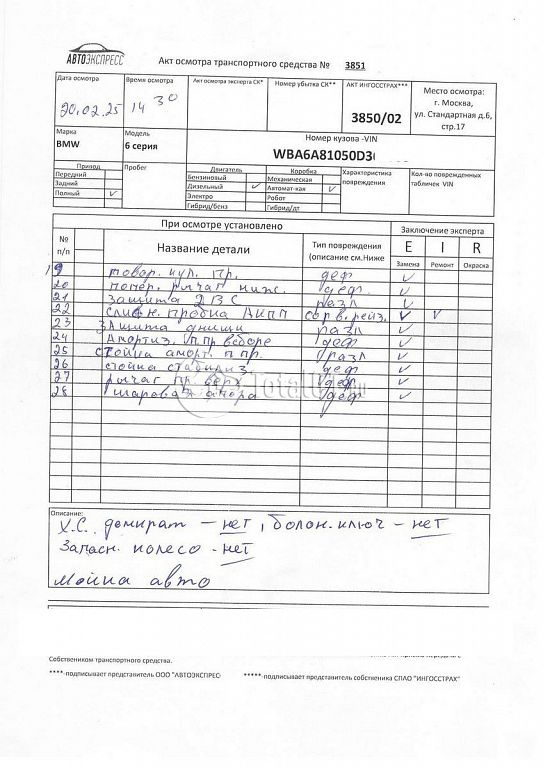 АВТОЭКСПРЕСС
Акт осмотра транспортного средства № 3851
Дата осмотра Время осмотра Акт осмотра эксперта СК* Номер убытка СК** АКТ ИНГОССТРАХ*** Место осмотра:
г. Москва,
ул. Стандартная д.6,
стр.17
20.02.25 14 30 3850/02
Марка Модель Номер кузова -VIN
BMW 6 серия WBA6A81050D3
Привод Пробег Двигатель Коробка Характеристика повреждения Кол-во поврежденных табличек VIN
Передний Бензиновый Механическая
Задний Дизельный ✓ Автомат-кая ✓
Полный ✓ Электро Робот
Гибрид/бенз Гибрид/дт
При осмотре установлено Заключение эксперта
№ п/п Название детали Тип повреждения (описание см.Ниже E I R
Замена Ремонт Окраска
19 повор. кул. пр. деф ✓
20 попер. рычаг ниж. деф. ✓
21 защита ДВС разл ✓
22 сливн. пробка АКПП сорв. резь. ✓ ✓
23 Защита днища разл ✓
24 Амортиз. п.пр в сборе деф ✓
25 стойка аморт. п пр. разл ✓
26 стойка стабилиз. деф ✓
27 рычаг пр. верх деф ✓
28 шаровая опора деф ✓
Total
Описание:
Х.С. домкрат - нет, балон. ключ - нет
Запасн. колесо - нет
Мойка авто
Собствеником транспортного средства.
****-подписывает представитель ООО "АВТОЭКСПРЕС *****-подписывает представитель собственика СПАО "ИНГОССТРАХ"